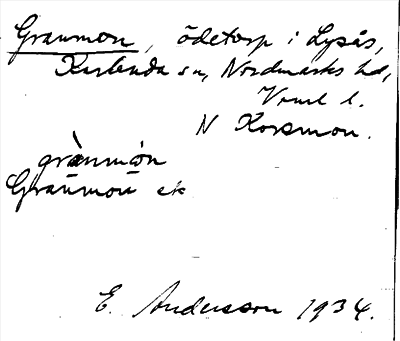 Granmon, ödetorp i Lysås,
Karlanda sn, Nordmarks hd,
Vrml l.
N Korsmon.
grànmón
Granmon ek
E. Andersson 1934.